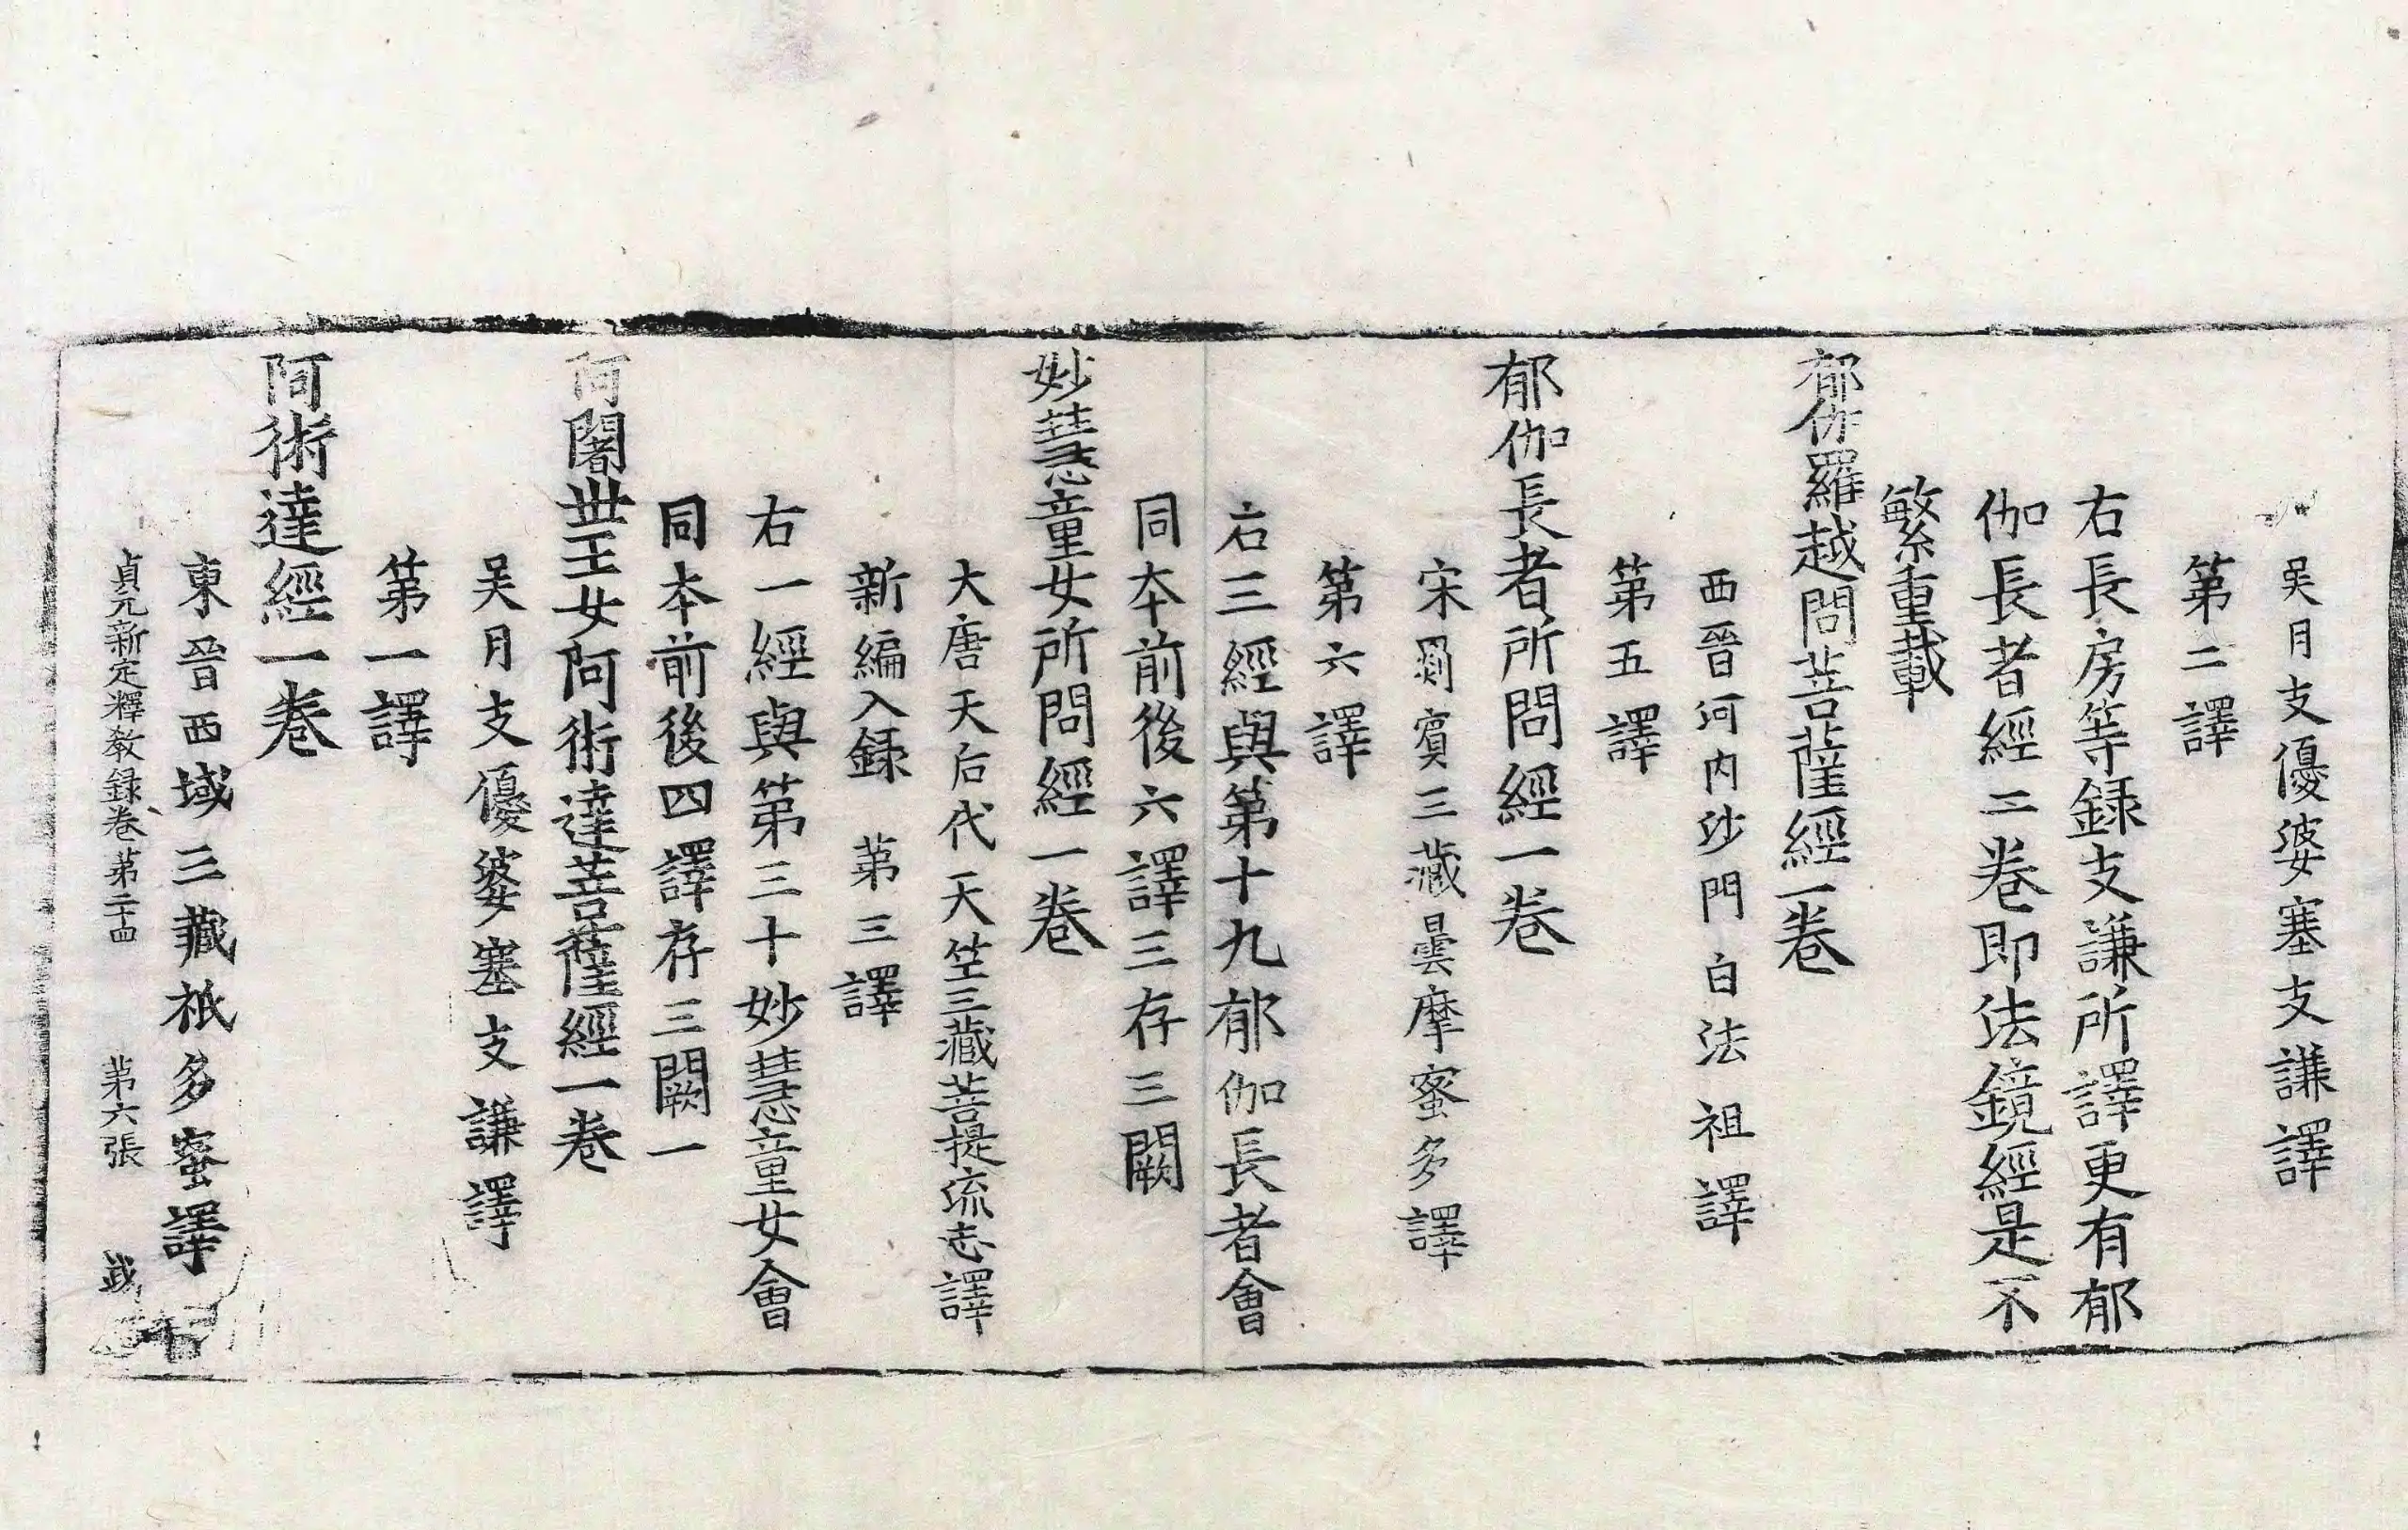 吴月支優婆塞支謙譯
第二譯
右長房等録支謙所譯更有郁
伽長者經二卷即法鏡經是不
繁重載
郁伽羅越問菩薩經一卷
西晉河内沙門白法祖譯
第五譯
郁伽長者所問經一卷
宋罽賓三藏曇摩蜜多譯
第六譯
右三經與第十九郁伽長者會
同本前後六譯三存三闕
妙慧童女所問經一卷
大唐天后代天竺三藏菩提流志譯
新編入録 第三譯
右一經與第三十妙慧童女會
同本前後四譯存三闕一
阿闍世王女阿術達菩薩經一卷
吴月支優婆塞支謙譯
第一譯
阿術達經一卷
東晉西域三藏祇多蜜譯
貞元新定釋教録卷第二十四 第六張